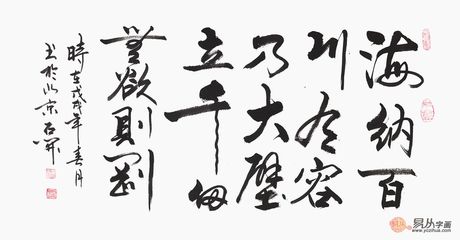 海納百
川有容
乃大壁
立千仞
無欲則剛
時在戊戌年春月
书於北京石開
易从字画
www.yczihua.com